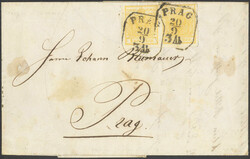 PRAG
20
9
PRAG
20
9
Herrn Johann
Prag.